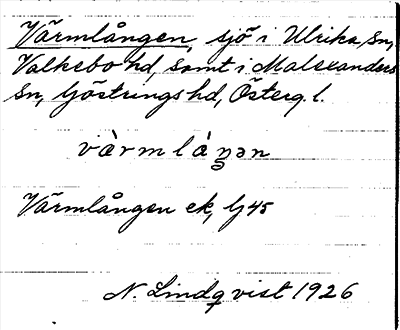 Värmlången, sjö i Ulrika sn,
Valkebo hd, samt i Malexanders
sn, Göstrings hd, Österg. l.
và̀rmlàŋən
Värmlången ek, Gj 45
N. Lindqvist 1926